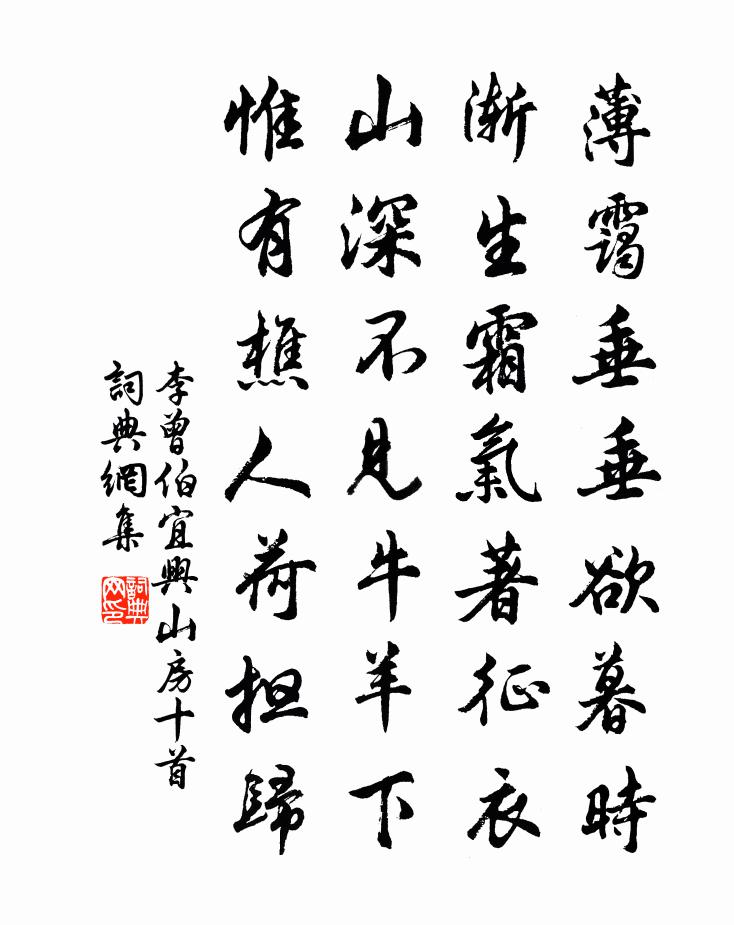 薄靄垂垂欲暮時
漸生霜氣著征衣
山深不見牛羊下
惟有樵人荷担歸
李曾伯宜興山房十首
詞典網集
詞典网印